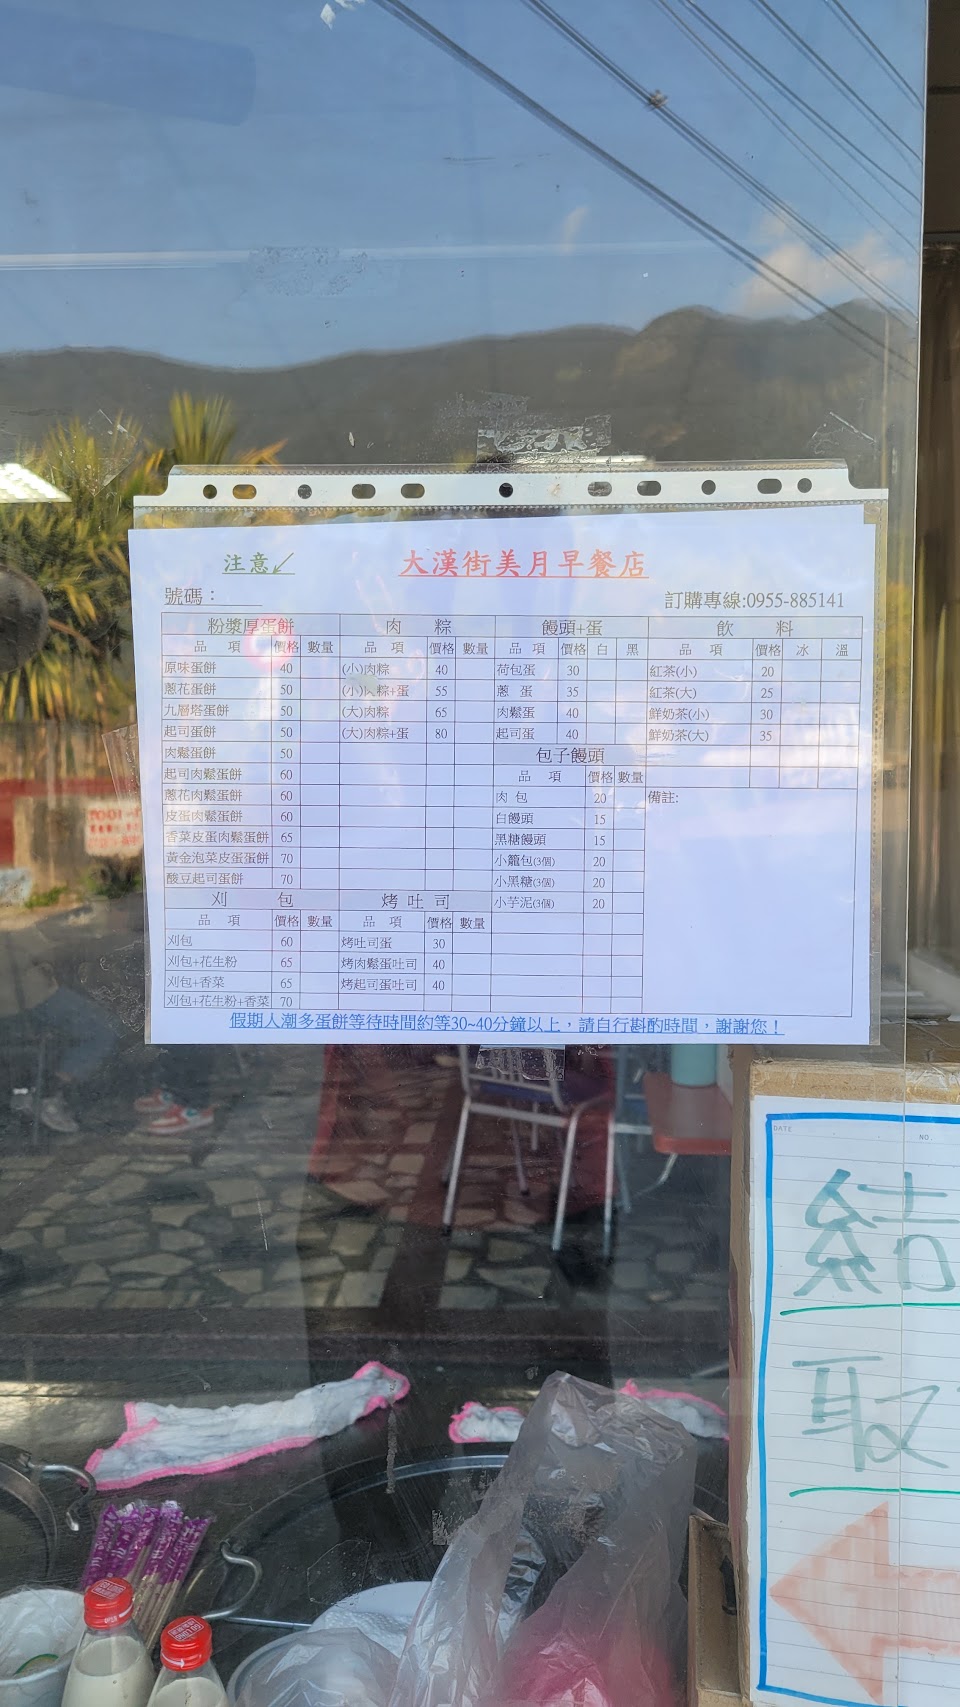 注意✓
大漢街美月早餐店
號碼：
訂購專線:0955-885141
粉漿厚蛋餅
品 項 價格 數量
原味蛋餅 40
蔥花蛋餅 50
九層塔蛋餅 50
起司蛋餅 50
肉鬆蛋餅 50
起司肉鬆蛋餅 60
蔥花肉鬆蛋餅 60
皮蛋肉鬆蛋餅 60
香菜皮蛋肉鬆蛋餅 65
黃金泡菜皮蛋蛋餅 70
酸豆起司蛋餅 70
刈 包
品 項 價格 數量
刈包 60
刈包+花生粉 65
刈包+香菜 65
刈包+花生粉+香菜 70
肉 粽
品 項 價格 數量
(小)肉粽 40
(小)肉粽+蛋 55
(大)肉粽 65
(大)肉粽+蛋 80
烤 吐 司
品 項 價格 數量
烤吐司蛋 30
烤肉鬆蛋吐司 40
烤起司蛋吐司 40
饅頭+蛋
品 項 價格 白 黑
荷包蛋 30
蔥 蛋 35
肉鬆蛋 40
起司蛋 40
包子饅頭
品 項 價格 數量
肉 包 20
白饅頭 15
黑糖饅頭 15
小籠包(3個) 20
小黑糖(3個) 20
小芋泥(3個) 20
飲 料
品 項 價格 冰 溫
紅茶(小) 20
紅茶(大) 25
鮮奶茶(小) 30
鮮奶茶(大) 35
備註:
假期人潮多蛋餅等待時間約等30~40分鐘以上，請自行斟酌時間，謝謝您！
DATE
NO.
結
取